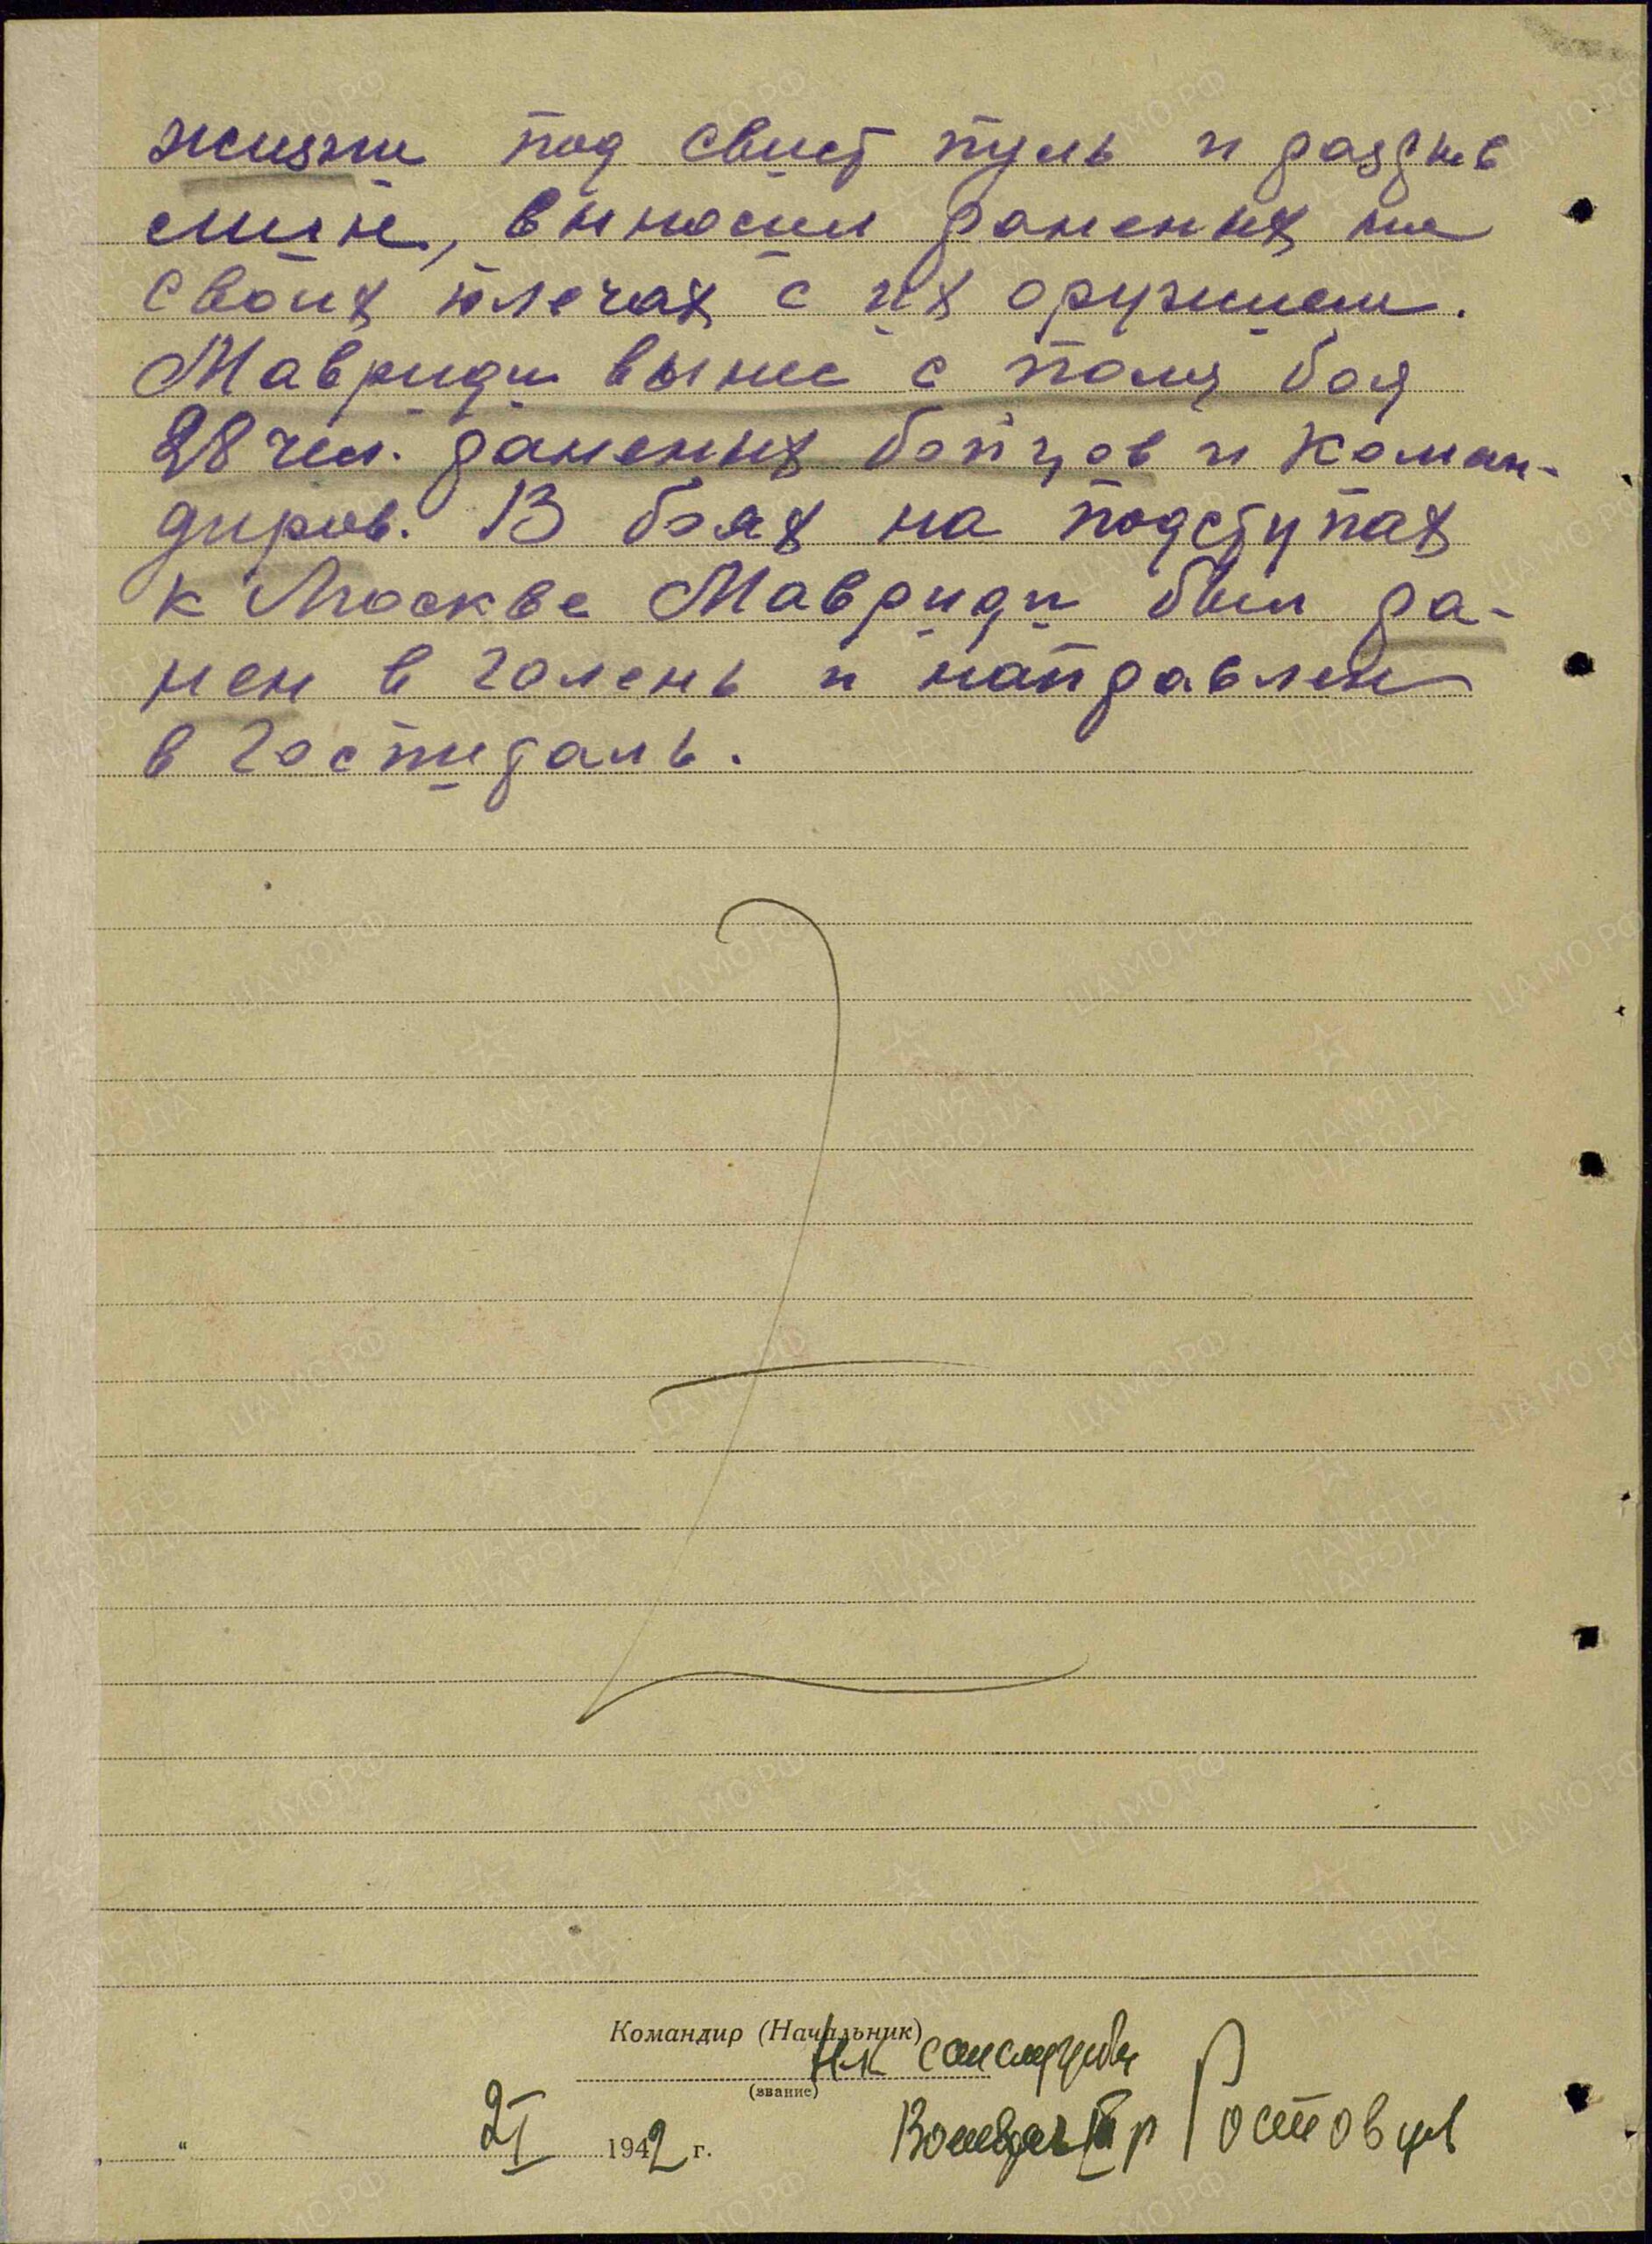 жизни под свист пуль и разрыв
мин, выносил раненых на
своих плечах с их оружием.
Мавриди вынес с поля боя
28 чел. раненых бойцов и коман-
диров. В боях на подступах
к Москве Мавриди был ра-
нен в голень и направлен
в госпиталь.
Командир (Начальник)
Н-к сансл
(звание)
Военврач III р Ростовцев
„ 2/I 1942 г.